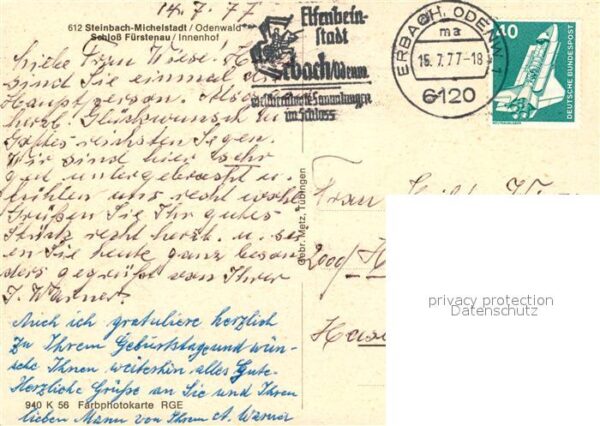 14.7.77
612 Steinbach-Michelstadt / Odenwald
Schloß Fürstenau / Innenhof
Liebe Frau Wiese. H
sind Sie einmal die
Hauptperson. Also
herzl. Glückwunsch u.
Gottes reichsten Segen.
Wir sind hier sehr
gut untergebracht u.
fühlen uns recht wohl
Grüßen Sie Ihr gutes
Stück recht herzl. u. sei
en Sie heute ganz beson
ders gegrüßt von Ihrer
Auch ich gratuliere herzlich
zu Ihrem Geburtstage und wün-
sche Ihnen weiterhin alles Gute.
Herzliche Grüße an Sie und Ihren
940 K 56 Farbphotokarte RGE
lieben Mann von Ihrem A. Warner
Elfenbein-
stadt
Erbach/Odenw.
Weltberühmte Sammlungen
im Schloss
ERBACH, ODENW 1
ma
15.7.77-18
6120
40
DEUTSCHE BUNDESPOST
Gebr. Metz, Tübingen
Frau
2000 / H
privacy protection
Datenschutz